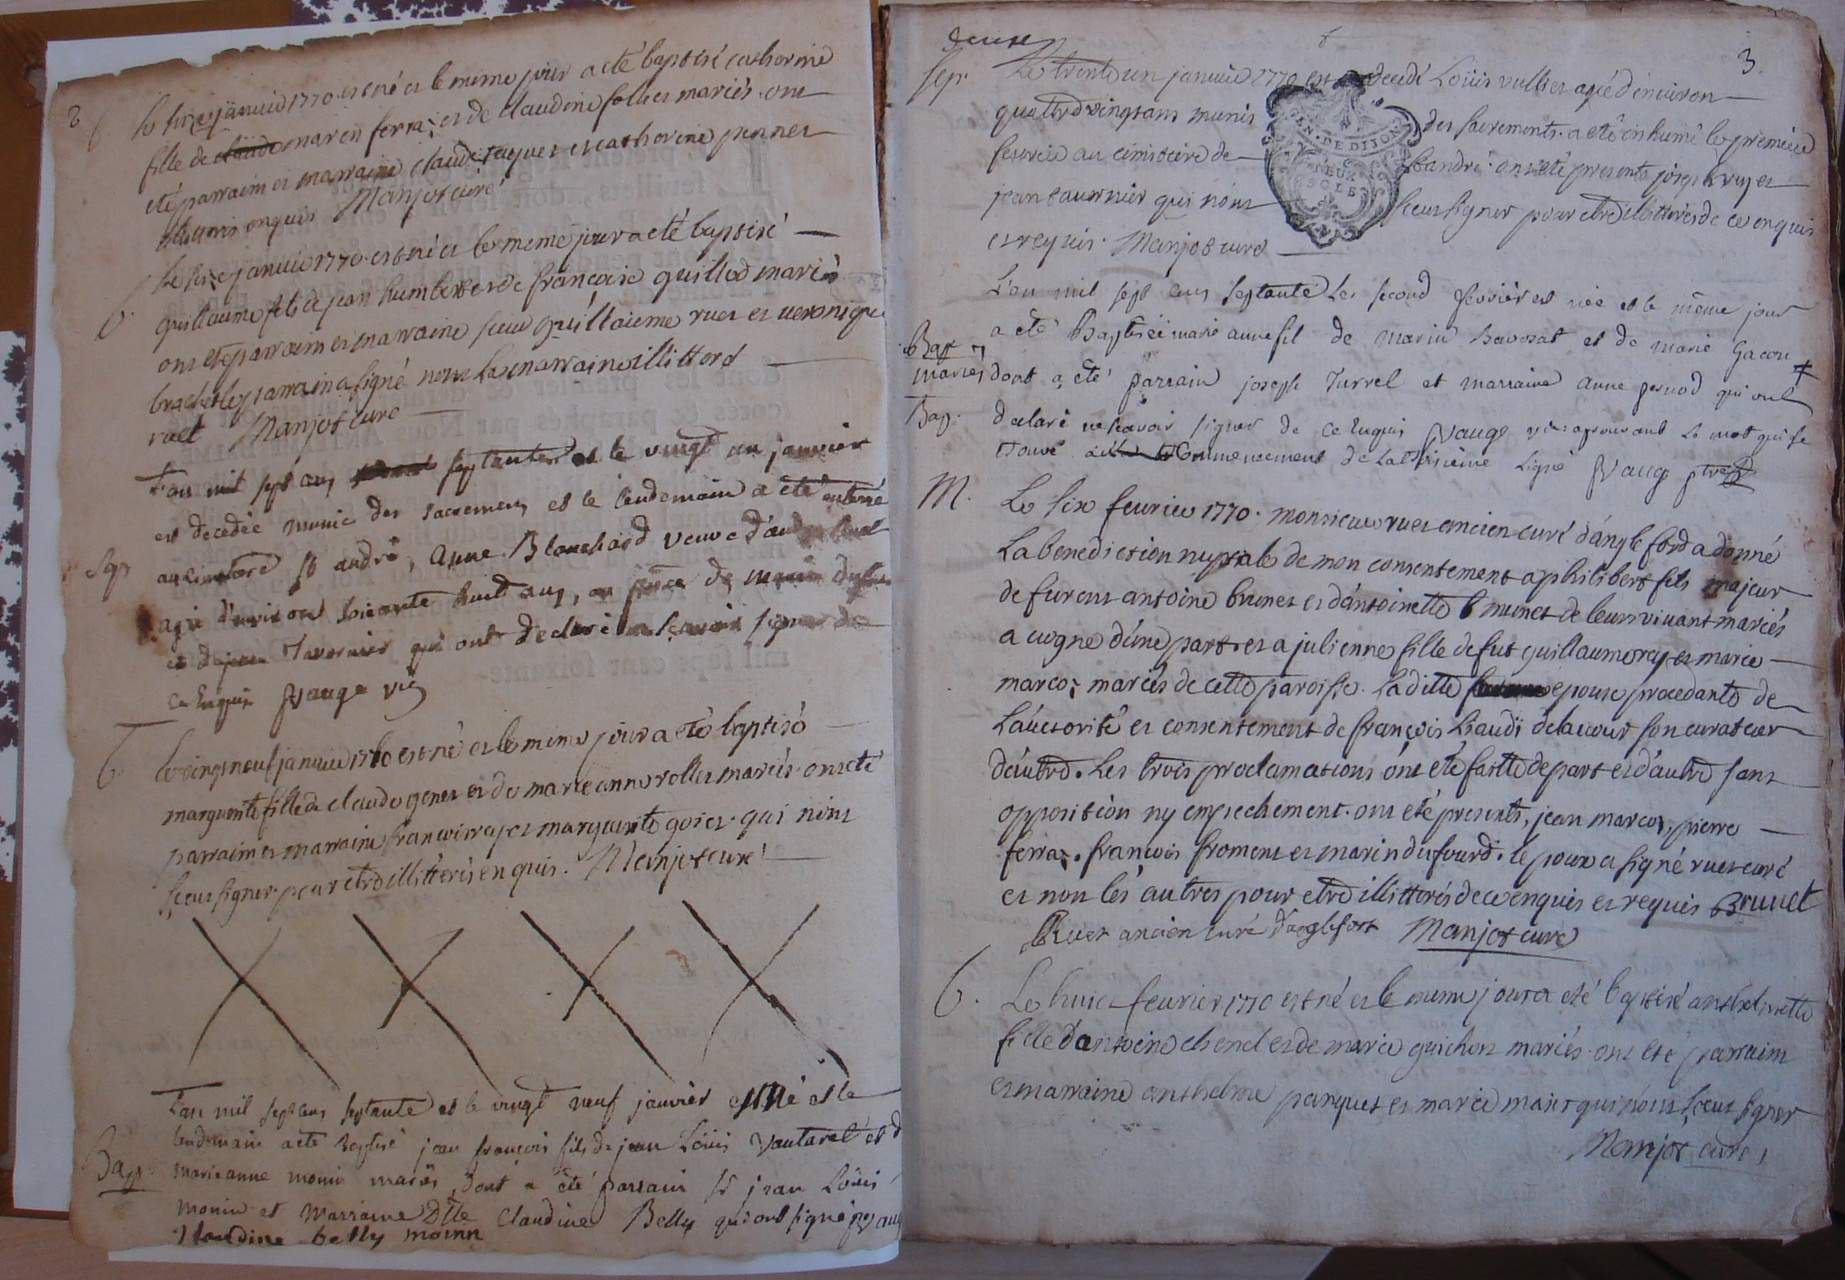 2
b. Le size janvier 1770 est né et le meme jour a eté baptisé catherine
fille de claude marin ferraz et de claudine follier mariés. ont
eté parraim et marraine claude jaquet et catherine perrier
illitterés enquis Manjot curé
b. Le size janvier 1770 est né et le meme jour a eté baptisé
guillaume fils de jean humbert et de francoise guillod mariés
ont eté parraim et marraine sieur guillaume ruet et veronique
brachet le parraim a signé non la marraine illitteré
ruet Manjot curé
L'an mil sept cens septante et le vingt un janvier
est decedée munie des sacremens et le lendemain a été enterré
au cimetiere st andré, anne Blanchard veuve d'andré
Sep. agée d'environ soixante huit ans, en présence de marin dufour
et de jean Tavernier qui ont declaré ne sçavoir signer de
ce Enquis Vauge vic
b. Le vingt neuf janvier 1770 est né et le meme jour a eté baptisé
marguerite fille de claude genet et de marie anne rollet mariés. ont eté
parraim et marraine francois rajet marguerite goiet. qui n'ont
sceut signer pour etre illitterés enquis. Manjot curé
L'an mil sept cens septante et le vingt neuf janvier est né et le
lendemain a eté baptisé jean françois fils de jean Louis Vautaret et d
Bap. marieanne monin mariés, dont a été parrain sr jean Louis
monin et marraine Dlle Claudine Belly qui ont signé Vauge
Claudine belly monin
3
Sep. Le trente un janvier 1770 est decedé Loüis vullier agé d'environ
quattre vingt ans munis des sacrements. a eté inhumé le premier
fevrier au cimitiere de st andré. ont eté presents joseph ruy et
GEN. DE DIJON
DEUX
SOLS
jean tavernier qui n'ont sceut signer pour etre illitterés de ce enquis
et requis. Manjot curé
L'an mil sept cens septante Les second fevrier est née et le même jour
Bap. a été Baptisée marie anne fil de marin Bavozat et de marie Gacon
mariés dont a été parrain joseph Turrel et marraine anne pernod qui ont
Bap. declaré ne sçavoir signer de ce Enquis Vauge vic aprouvant le mot qui se
trouve au commencement de la troisieme ligne Vauge ptre
M. Le six fevrier 1770. monsieur ruet ancien curé d'angleford a donné
la benediction nuptiale de mon consentement a philibert fils majeur
de furent antoine brunet et d'antoinette brunet de leurs vivant mariés
a cuogne d'une part. et a julienne fille de fut guillaume rey et marie
marcoz mariés de cette paroisse. la ditte epouse procedante de
l'autorité et consentement de françois Baudi delacour son curateur
d'autre. Les trois proclamations ont eté faitte de part et d'autre sans
opposition ny empechement. ont eté presents, jean marcoz, pierre
ferraz. francois froment et marin dufourd. lepoux a signé ruet curé
et non les autres pour etre illitterés de ce enquis et requis Brunet
Ruet ancien curé d'anglefort Manjot curé
b. Le huict fevrier 1770 est né et le meme jour a eté baptisé anthelmette
fille d'antoine chenel et de marie guichon mariés. ont eté parraim
et marraine anthelme parquet et marie maint qui n'ont sceut signer
Manjot curé